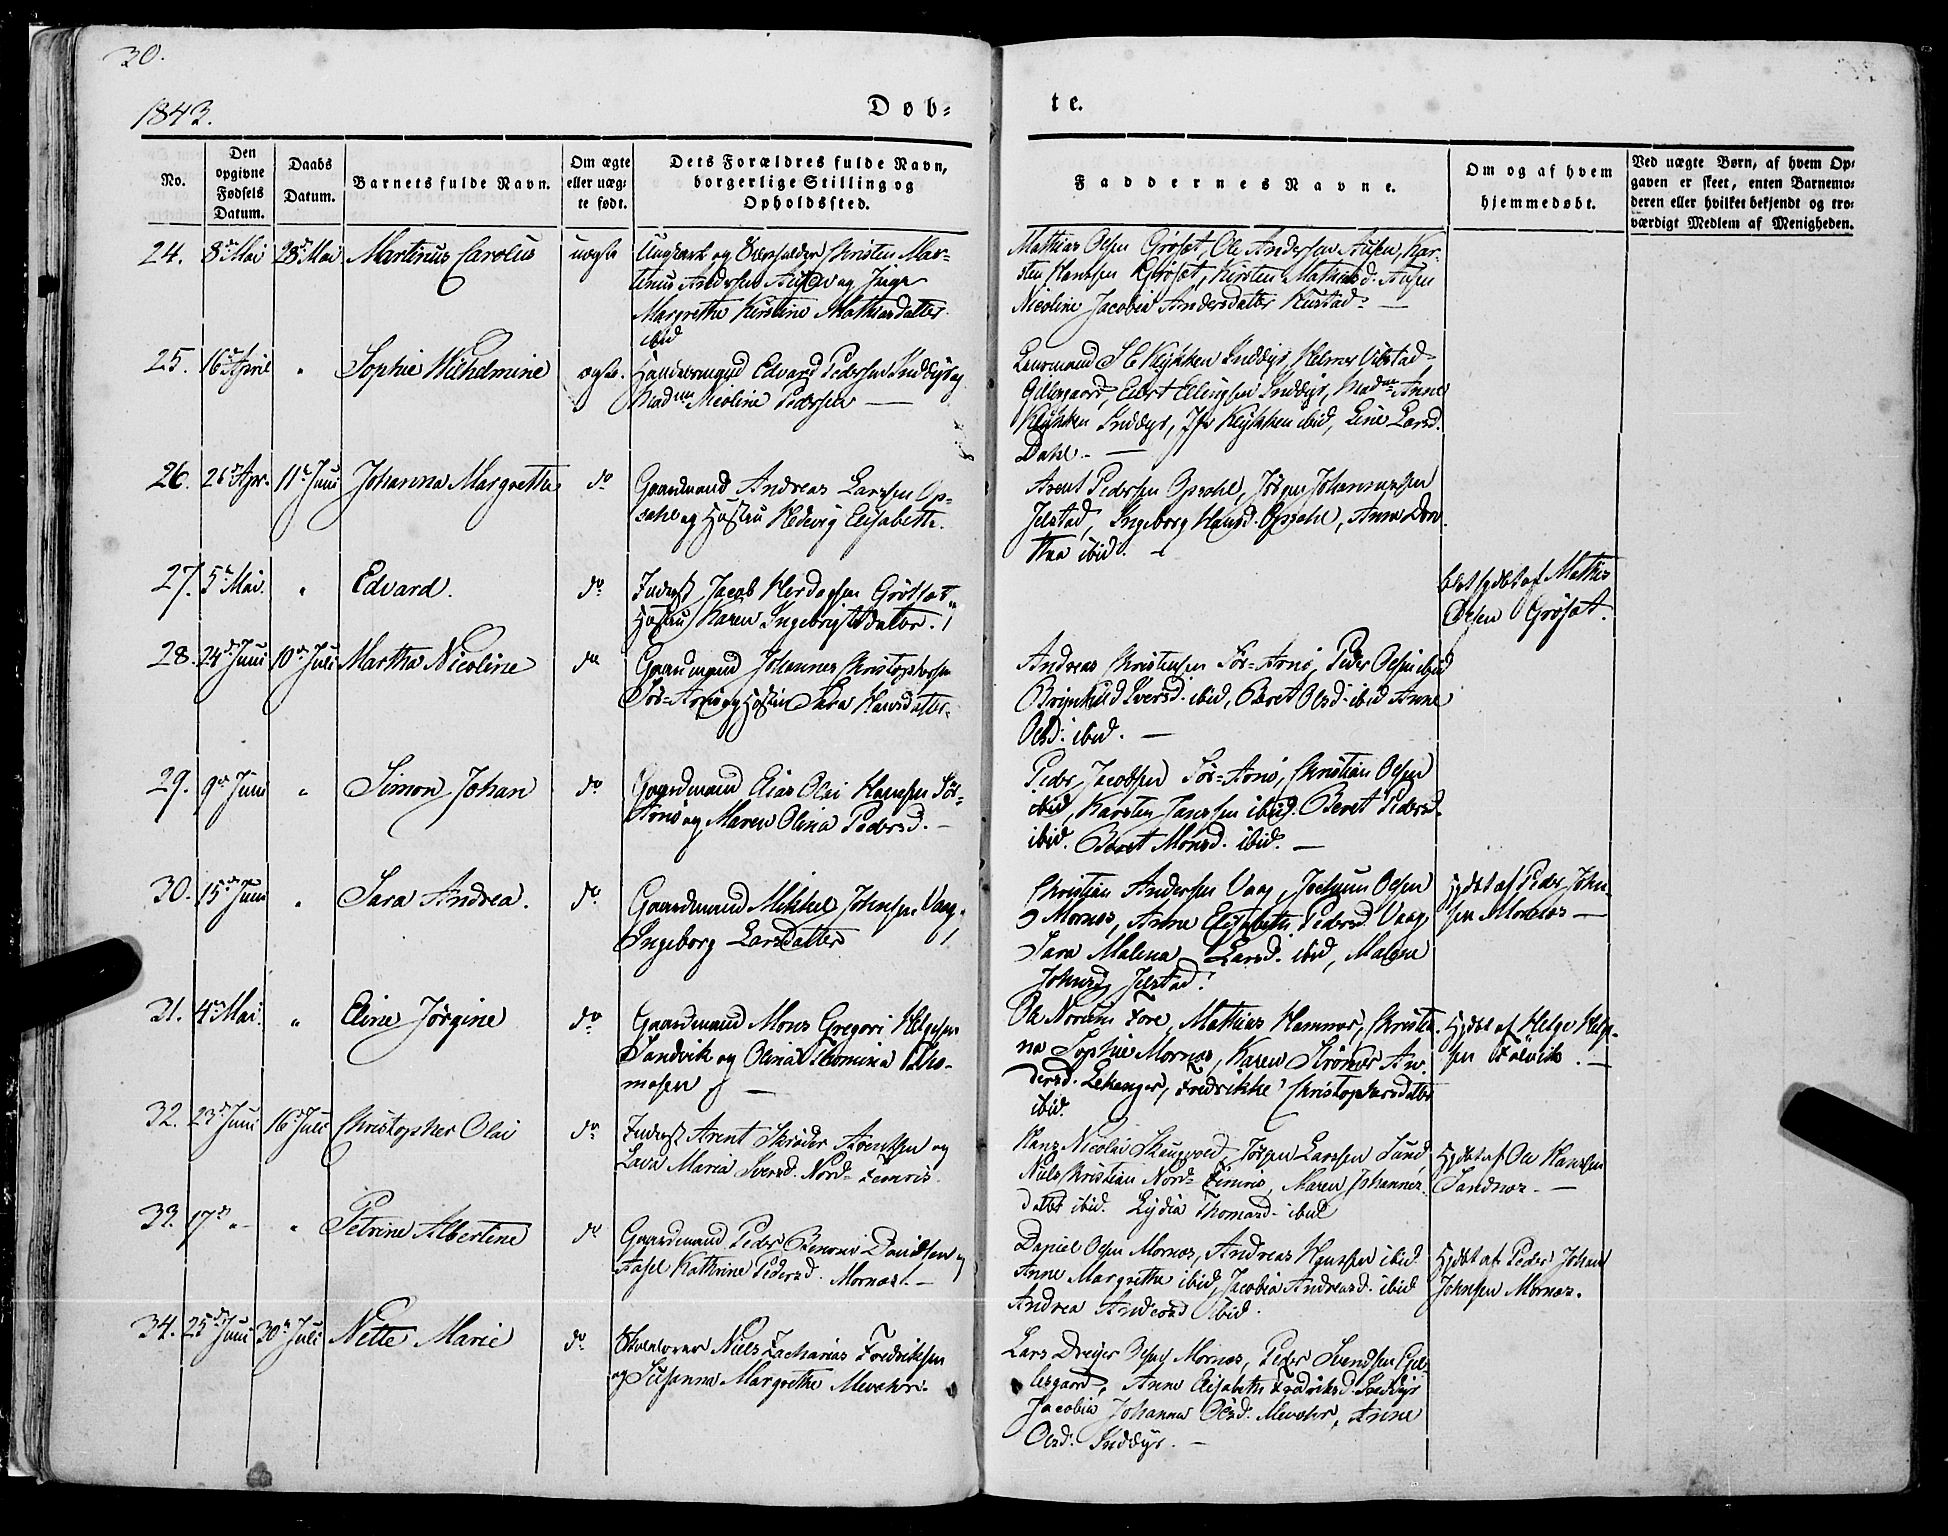 30.
1843.
Døb-
te.
No.
Den opgivne Fødsels Datum.
Daabs Datum.
Barnets fulde Navn.
Om ægte eller uægte født.
Dets Forældres fulde Navn, borgerlige Stilling og Opholdssted.
Faddernes Navne.
Om og af hvem hjemmedøbt.
Ved uægte Børn, af hvem Op-
gaven er skeet, enten Barnemo-
deren eller hvilket bekjendt og tro-
værdigt Medlem af Menigheden.
24. 8de Mai 28de Mai Martinus Carolus uægte Ungkarl og Christen Mar-
tinus Andersen og Pige
Margrethe Kirstine Mathiasdatter
ibid
Mathias Olsen Grøsæt, Ole Andersen Kar-
sten Hansen Grøsæt, Kirsten Mathiasd.
Nicoline Jacobia Andersdatter
25. 16de April " Sophie Wilhelmine ægte. Edvard Pedersen Inddyr og
Madme Nicoline Pedersen —
S E Klykken Inddyr, Helmer Vibstad
Gillesgaard, Eilert Ellingsen Inddyr, Madme Anne
Klykken Inddyr, Jfr Klykken ibid, Line Larsd.
Dahl. —
26. 26de Apr. 11te Juni Johanna Margrethe do Gaardmand Andreas Larsen Op-
sahl og Hustru Hedevig Elisabeth.
Arent Pedersen Opsahl, Jørgen Johannessen
Jelstad, Ingeborg Hansd. Opsahl, Anne Doro-
thea ibid.
27. 5te Mai. " Edvard. do Inderst Jacob Herdagsen Grøttæt
Hustru Karen Ingebrigtsdatter.
blot hjdbt af Mathis
Olsen Grøsæt.
28. 24de Juni 10de Juli Martha Nicoline do Gaardmand Johannes Christophersen
Sør-Arnø og Hustru Sara Hansdatter.
Andreas Christensen Sør-Arnø, Peder Olsen ibid
Brynhild Iversd. ibid, Beret Olsd. ibid Anne
Olsd. ibid. —
29. 9de Juni " Simon Johan do Gaardmand Elias Olai Hansen Sør-
Arnø og Maren Olina Pedersd. —
Peder Jacobsen Sør-Arnø, Christian Olsen
ibid, Karsten Jansen ibid. Beret Pedersd.
ibid. Beret Monsd. ibid. —
30. 15de Juni " Sara Andrea. do Gaardmand Mikkel Johnsen Vaag,
Ingeborg Larsdatter
Christian Andersen Vaag, Jochum Olsen
Mornæs, Anne Elisabeth Pedersd. Vaag,
Sara Malena Larsd. ibid, Malene
Johnsd. Jelstad.
Hjdbt af Peder John-
sen Mornæs —
31. 4de Mai. " Eline Jørgine do Gaardmand Mons Gregori Helgesen
Sandvik og Olina Thomina Tho-
masen —
Ole Norum Fore, Mathias Hamnes, Christi-
na Sophie Mornæs, Karen Strømsæ An-
dersd. Lekanger, Fredrikke Christophersdatter
ibid.
Hjdbt af Helge Helge-
sen —
32. 23de Juni 16de Juli Christopher Olai do Inderst Arent Schrøder Arentsen og
Lava Maria Iversd. Nord-
Hans Nicolai Skaugvold, Jørgen Larssen Sund,
Niels Christian Nord- Maren Johannes-
datter ibid. Lydia Thomasd. ibid
Hjdbt af Ole Hansen
Sandnæs. —
33. 17de " " Petrine Albertine do Gaardmand Peder Benoni Davidsen og
Aasel Kathrine Pedersd. Mornæs. —
Daniel Olsen Mornæs, Andreas Hansen ibid
Anne Margrethe ibid, Jacobia Andreasd. ibid
Andrea Andersd ibid.
Hjdbt af Peder Johan
Johnsen Mornæs.
34. 25de Juni 30te Juli Nette Marie do Skolelærer Niels Zacharias Fredriksen
og Susanna Margrethe Mevahr.
Lars Dreyer Olsen Mornæs, Peder Svendsen Gil-
lesgaard, Anne Elisabeth Fredriksd. Inddyr
Jacobia Johanna Olsd. Mevahr, Anne
Olsd. Inddyr. —